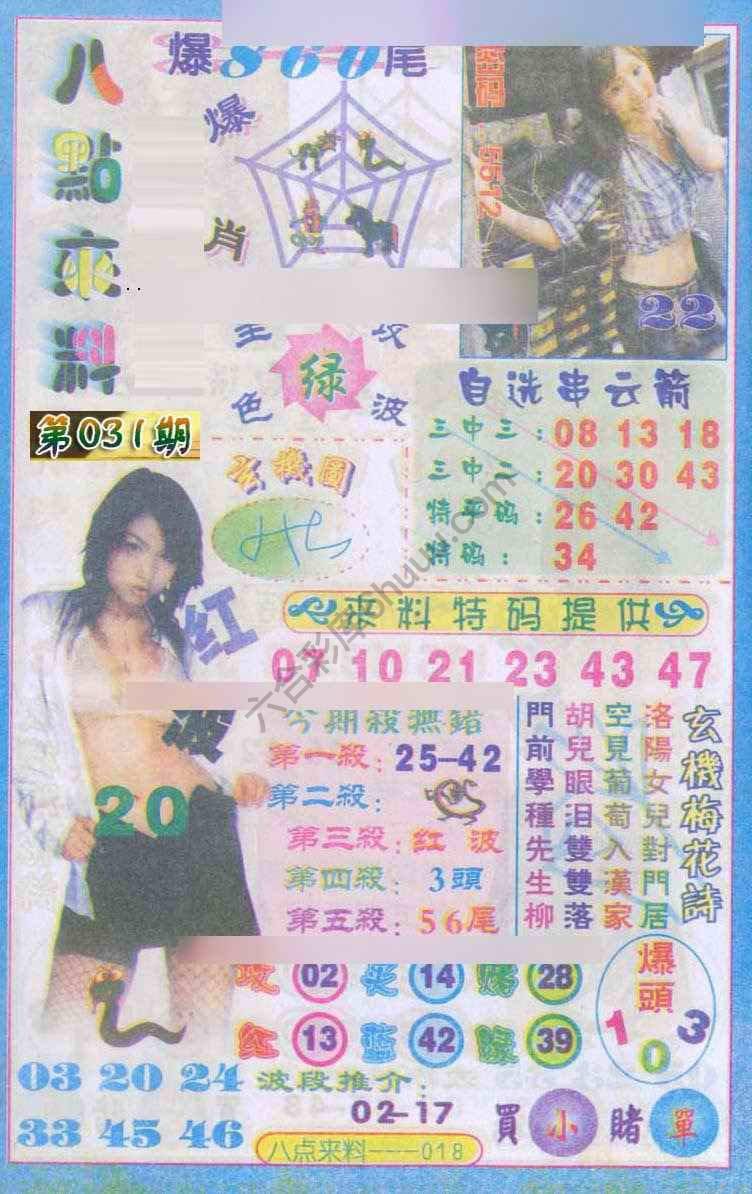 爆860尾
八點來料
爆
肖
5512
22
绿
色 波
第031期
自选串云箭
三中三:08 13 18
三中二:20 30 43
特平码:26 42
特码:34
玄機圖
来料特码提供
07 10 21 23 43 47
红
波
20
今期殺無錯
第一殺:25-42
第二殺:
第三殺:红波
第四殺:3頭
第五殺:56尾
玄機梅花詩
洛陽女兒對門居
空見葡萄入漢家
胡兒眼泪雙雙落
門前學種先生柳
02 14 28
红13 蓝42 绿39
爆頭
1 0 3
03 20 24
33 45 46
波段推介:
02-17
買小賭單
八点来料---018
六合彩库